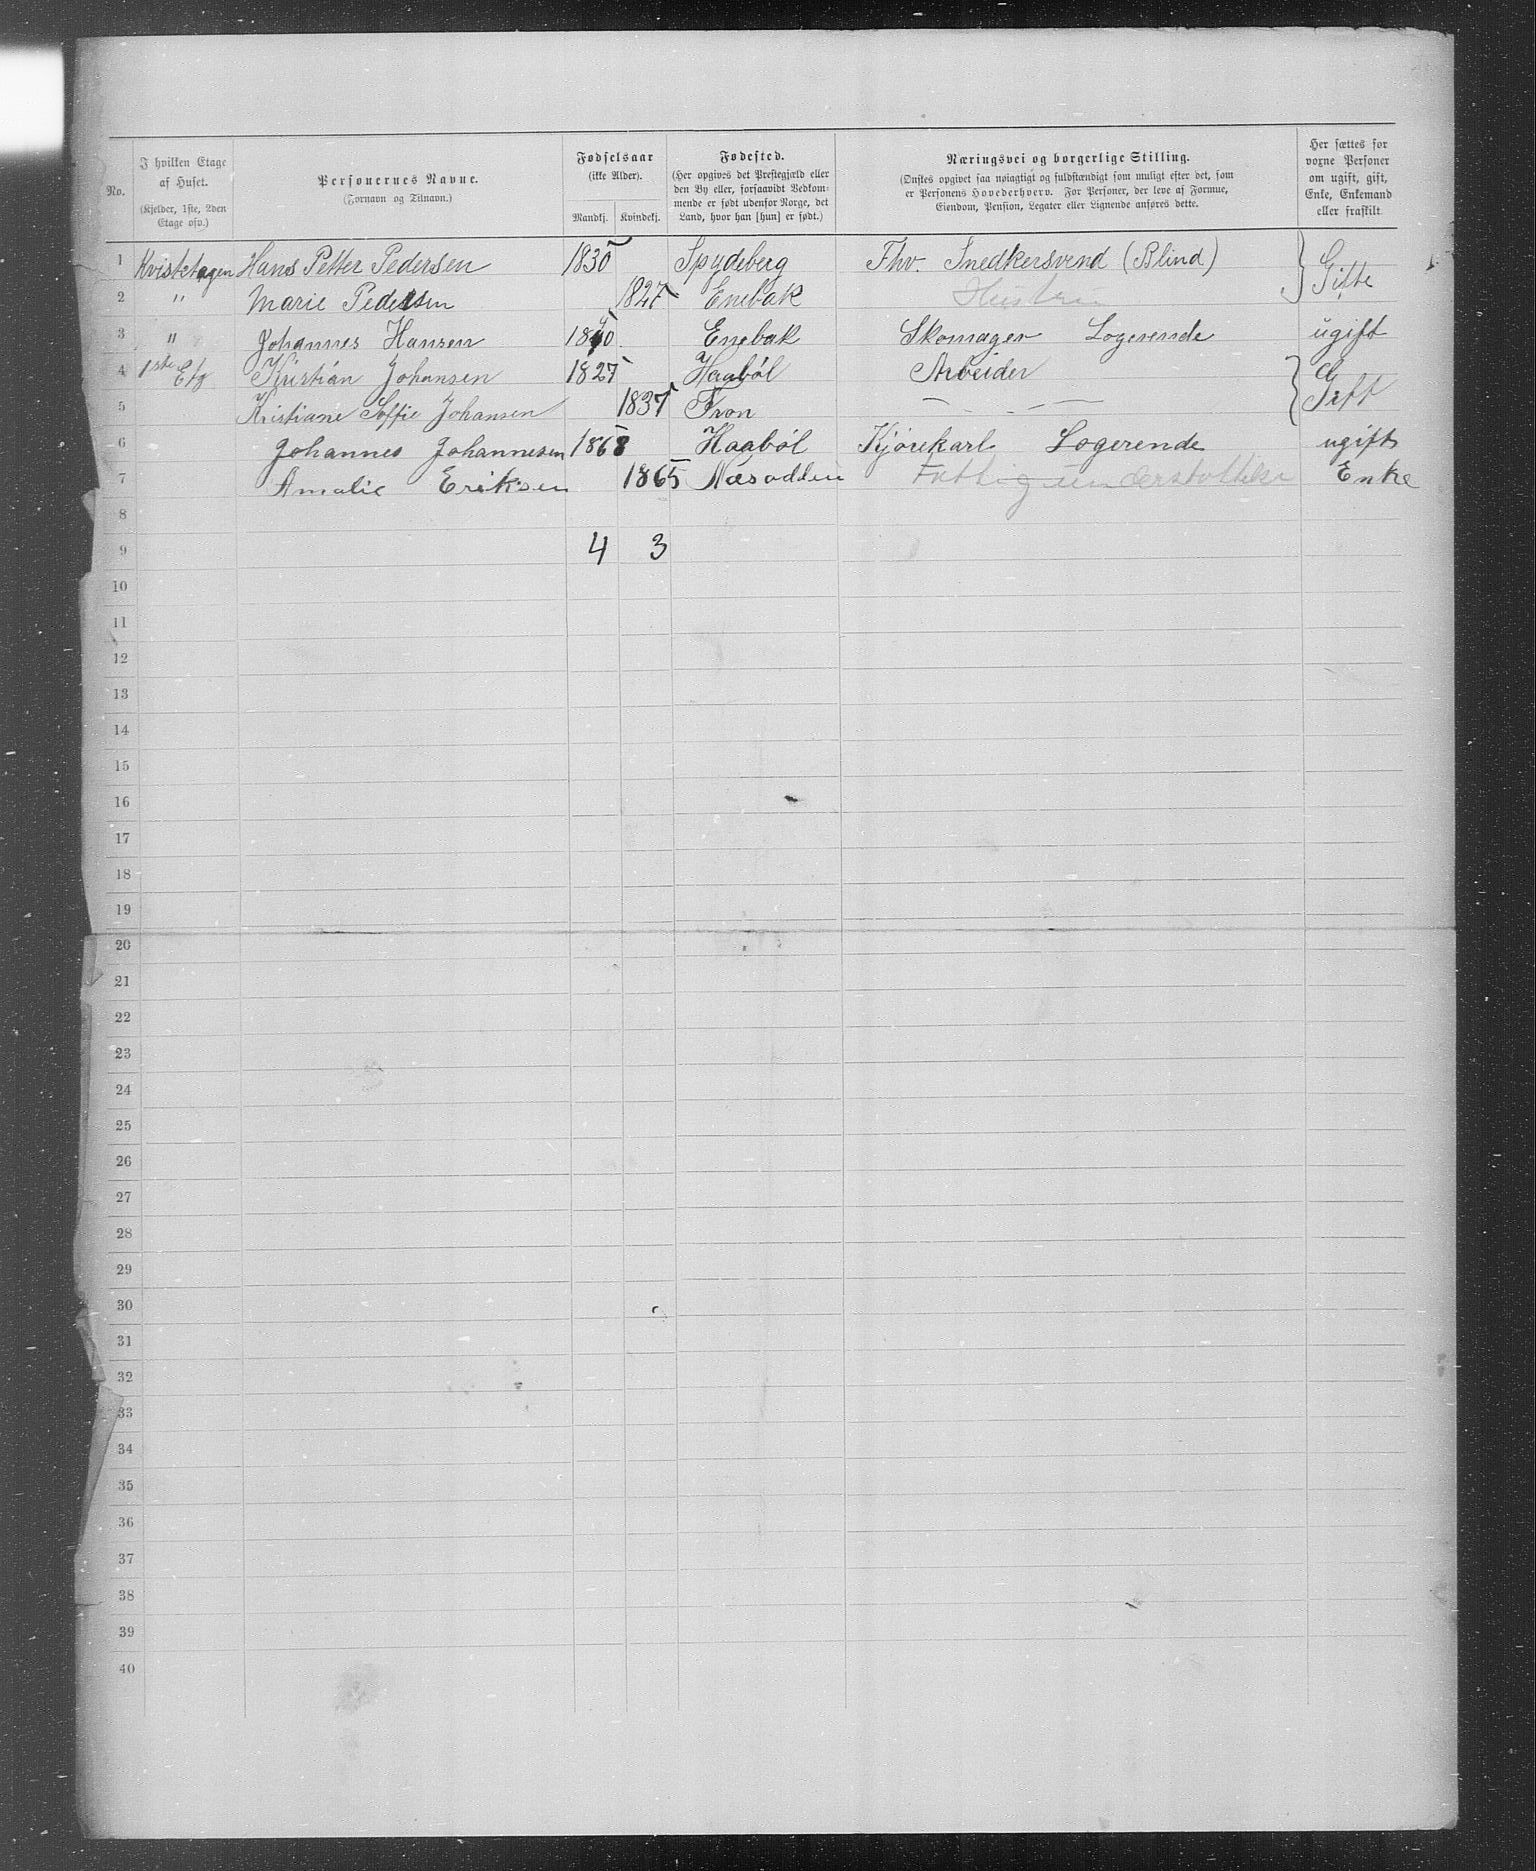 No.
I hvilken Etage af Huset.
(Kjelder, 1ste, 2den Etage osv.)
Personernes Navne.
(Fornavn og Tilnavn.)
Fødselsaar
(ikke Alder).
Mandkj. Kvindekj.
Fødested.
(Her opgives det Prestegjæld eller
den By eller, forsaavidt Vedkom-
mende er født udenfor Norge, det
Land, hvor han [hun] er født.)
Næringsvei og borgerlige Stilling.
(Ønstes opgivet saa nøiagtigt og fuldstændigt som muligt efter det, som
er Personens Hovederhverv. For Personer, der leve af Formue,
Eiendom, Pension, Legater eller Lignende anføres dette.
Her sættes for
voxne Personer
om ugift, gift,
Enke, Enkemand
eller fraskilt
1 Kvistetagen Hans Petter Pedersen 1830 Spydeberg Fhv. Snedkersvend (Blind) Gifte
2 " Marie Pedersen 1827 Enebak Hustru
3 " Johannes Hansen Enebak Skomager Logerende ugift
4 1ste Etg Kristian Johansen 1827 Haabøl Arbeider Gift
5 Kristiane Soffie Johansen 1837 Fron — " —
6 Johannes Johannesen 1868 Haabøl Kjørekarl Logerende ugift
7 Amalie Eriksen 1865 Næsodden Fattigunderstøttelse Enke
8
9 4 3
10
11
12
13
14
15
16
17
18
19
20
21
22
23
24
25
26
27
28
29
30
31
32
33
34
35
36
37
38
39
40